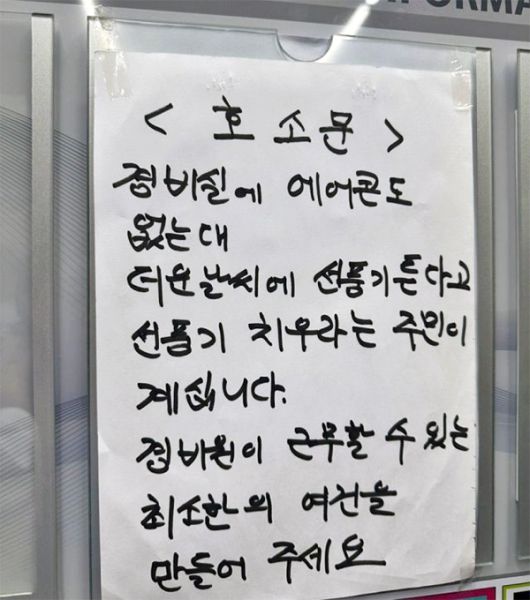 INFORMA
< 호 소 문 >
경비실에 에어콘도
없는대
더운날씨에 선풍기튼다고
선풍기 치우라는 주민이
계십니다.
경비원이 근무할 수 있는
최소한의 여건을
만들어 주세요